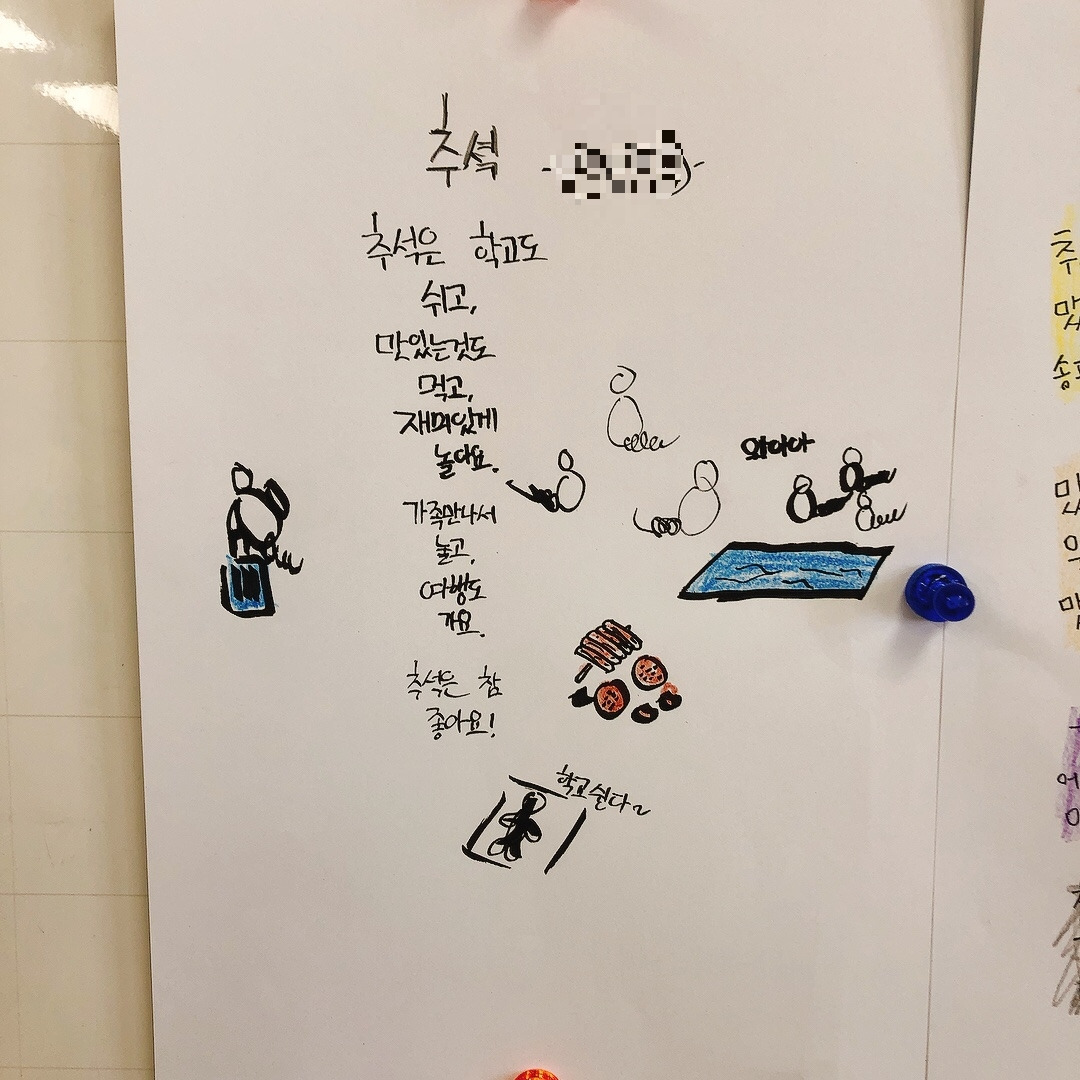 추석
추석은 학교도
쉬고,
맛있는것도
먹고,
재미있게
놀아요.
가족만나서
놀고,
여행도
가요.
추석은 참
좋아요!
와아아
학교쉰다~